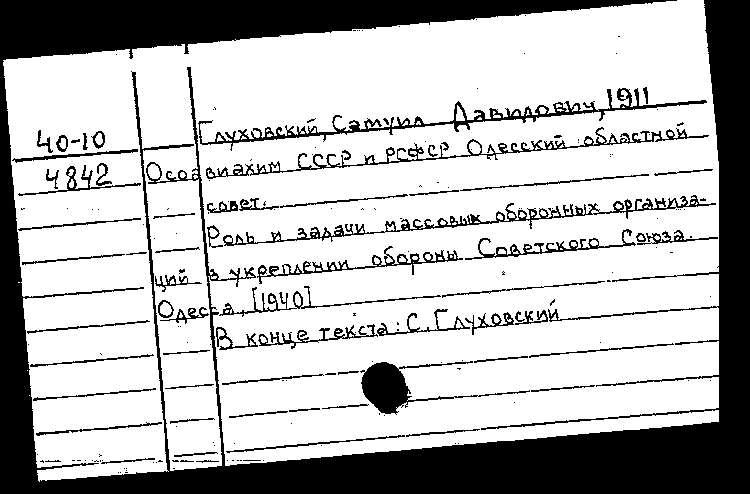 40-10
4842
Глуховский, Самуил Давидович, 1911
Осоавиахим СССР и РСФСР Одесский областной
совет.
Роль и задачи массовых оборонных организа-
ций в укреплении обороны Советского Союза.
Одесса, [1940]
В конце текста: С. Глуховский